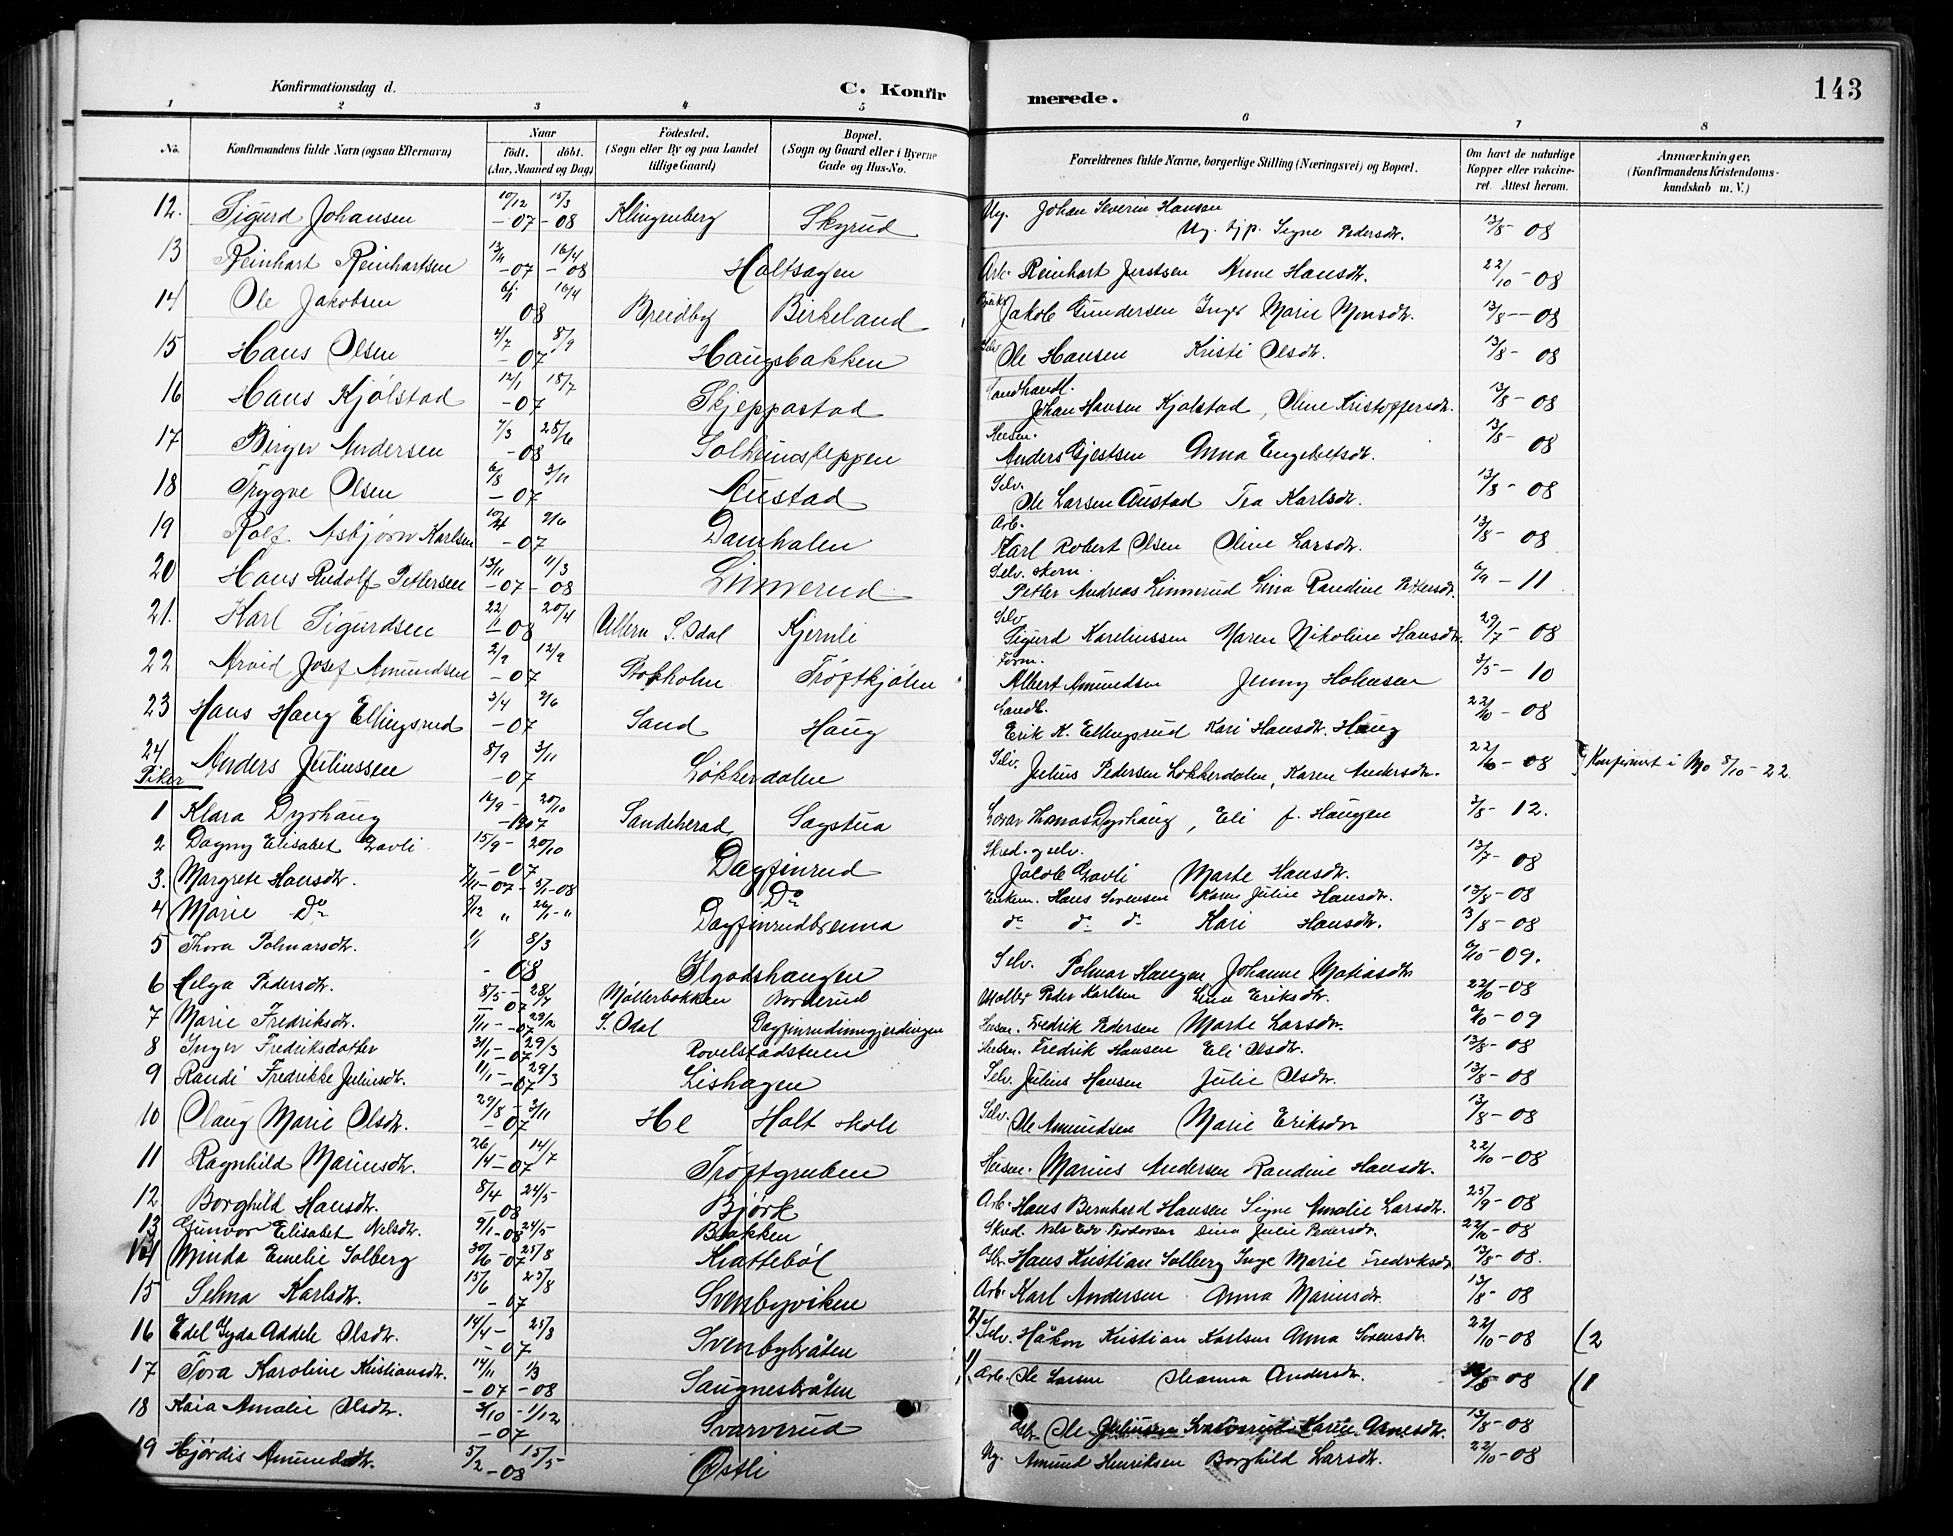 143
Konfirmationsdag d.
C. Konfirmerede.
1 2 3 4 5 6 7 8
No. Konfirmandens fulde Navn (ogsaa Efternavn) Naar født. døbt. (Aar, Maaned og Dag) Fødested. (Sogn eller By og paa Landet tillige Gaard) Bopæl. (Sogn og Gaard eller i Byerne Gade og Hus-No. Forældrenes fulde Navne, borgerlige Stilling (Næringsvei) og Bopæl. Om havt de naturlige Kopper eller vakcineret. Attest herom. Anmærkninger. (Konfirmandens Kristendomskundskab m. V.)
12. Sigurd Johansen 10/12 -07 15/3 -08 Klingenberg Skyrud Ug. Johan Severin Hansen Ug. Signe Pedersdt. 13/8-08
13 Reinhart Reinhartsen 13/11 -07 16/4 -08 Holtsagen Arb. Reinhart Jerstsen Anne Hansdt. 22/10-08
14 Ole Jakobsen 6/1 16/4 08 Breidby Birkeland Jakob Gundersen Inger Marie Monsdt. 13/8-08
15 Hans Olsen 2/7 8/9 -07 Haugsbakken Selv Ole Hansen Kristi Olsdt. 13/8-08
16 Hans Kjølstad 12/1 18/7 -07 Skjeppastad Landhandl. Johan Hansen Kjølstad, Oline Kristoffersdt. 13/8-08
17 Birger Andersen 7/3 28/6 -08 Solheimsteppen Anders Gjestsen Anna Engebretsdt. 13/8-08
18 Trygve Olsen 6/8 3/11 -07 Austad Selv. Ole Larsen Austad Tea Karlsdt. 13/8-08
19 Rolf Asbjørn Karlsen 9/6 -07 Damholen Arb. Karl Robert Olsen Oline Larsdt. 13/8-08
20 Hans Rudolf Pettersen 13/11 -07 11/3 -08 Linnerud Selv. skom. Petter Andreas Linnerud Lina Randine Pettersdt. 6/9-11
21. Karl Sigurdsen 22/1 20/4 -08 Ullern S. Odal Kjernli Selv Sigurd Kareliussen Maren Nikoline Hansdt. 29/7-08
22 Arvid Josef Amundsen 2/9 12/9 -07 Stokholm Trøftkjølen Form. Albert Amundsen Jenny Holmsen 3/5-10
23 Hans Haug Ellingsrud 3/4 9/6 -07 Sand Haug Landh. Erik K. Ellingsrud Kari Hansdt. Haug 22/10-08
24 Anders Juliussen 8/9 3/11 -07 Løkkerdalen Selv. Julius Pedersen Løkkerdalen, Karen Andersdt. 22/10-08 Konfirmert i Mo 8/10-22
Piker
1 Klara Dyrhaug 16/9 20/10 -1907 Sandeherad Sagstua Thomas Dyrhaug, Eli f. Haugen 3/8-12.
2 Dagny Elisabet Lovli 15/9 20/10 -07 Dagfinrud Skred. og selv. Jakob Lovli Marte Hansdt. 13/7-08
3. Margrete Hansdt. -07 -08 Do Enkem. Hans Sørensen Karen Julie Hansdt. 13/8-08
4 Marie Do 5/12 " Dagfinrudbrenna do do do Kari Hansdt. 13/8-08
5 Thora Polmarsdt. 1/1 8/3 -08 Ilgodshaugen Selv. Polmar Haugen Johanne Matiasdt. 6/10-09.
6 Helga Pedersdt. 8/5 28/7 -07 Møllerbakken Norderud Møller Peder Karlsen Lina Eriksdt. 22/10-08
7 Marie Fredriksdt. 1/11 29/2 -07 S. Odal Dagfinrudinngjerdingen Husm. Fredrik Pedersen Marte Larsdt. 6/10-09
8 Inger Fredriksdatter 31/1 29/3 -07 Rovelstadstuen Fredrik Hansen Eli Olsdt. 13/8-08
9 Randi Fredrikke Juliusdt. 11/1 29/3 -07 Lishagen Selv. Julius Hansen Julie Olsdt. 13/8-08
10 Olaug Marie Olsdt. 29/8 3/11 -07 He Holt skole Selv. Ole Amundsen Marie Eriksdt 13/8-08
11 Ragnhild Mariusdt. 26/4 14/7 -07 Trøftgruben Marius Andersen Randine Hansdt. 22/10-08
12 Borghild Hansdt. 8/4 24/5 -08 Bjørk Arb. Hans Bernhard Hansen Signe Amalie Larsdt. 25/9-08
13 Gunvor Elisabet Nelsdt. 9/1 24/5 -08 Bakken Skred. Nels Edv. Teodorsen Dina Julie Pedersdt. 22/10-08
14 Minda Emelie Solberg 30/6 25/8 -07 Krattebøl Hans Kristian Solberg Inge Marie Fredriksdt 13/8-08.
15 Selma Karlsdt. 15/6 25/8 -07 Svenbyviken Arb. Karl Andersen Anna Mariusdt. 13/8-08
16 Edel Gyda Addele Olsdt. 14/4 25/8 -07 Svenbybråten 2/ Selv. Håkon Kristian Karlsen Anna Sørensdt. 22/10-08 (2
17 Tora Karoline Kristiansdt. 14/11 -07 1/3 -08 Saugnesbråten 1/ Arb. Ole Larsen Oleanna Andersdt. -08 (1
18 Kaia Amalie Olsdt. 3/10 1/12 -07 Svarverud Ole Juliussen Karen Arnesdt. 13/8-08
19 Hjørdis Amundsdt. 5/2 15/5 -08 Østli Ug. Amund Henriksen Borghild Larsdt. 22/10-08